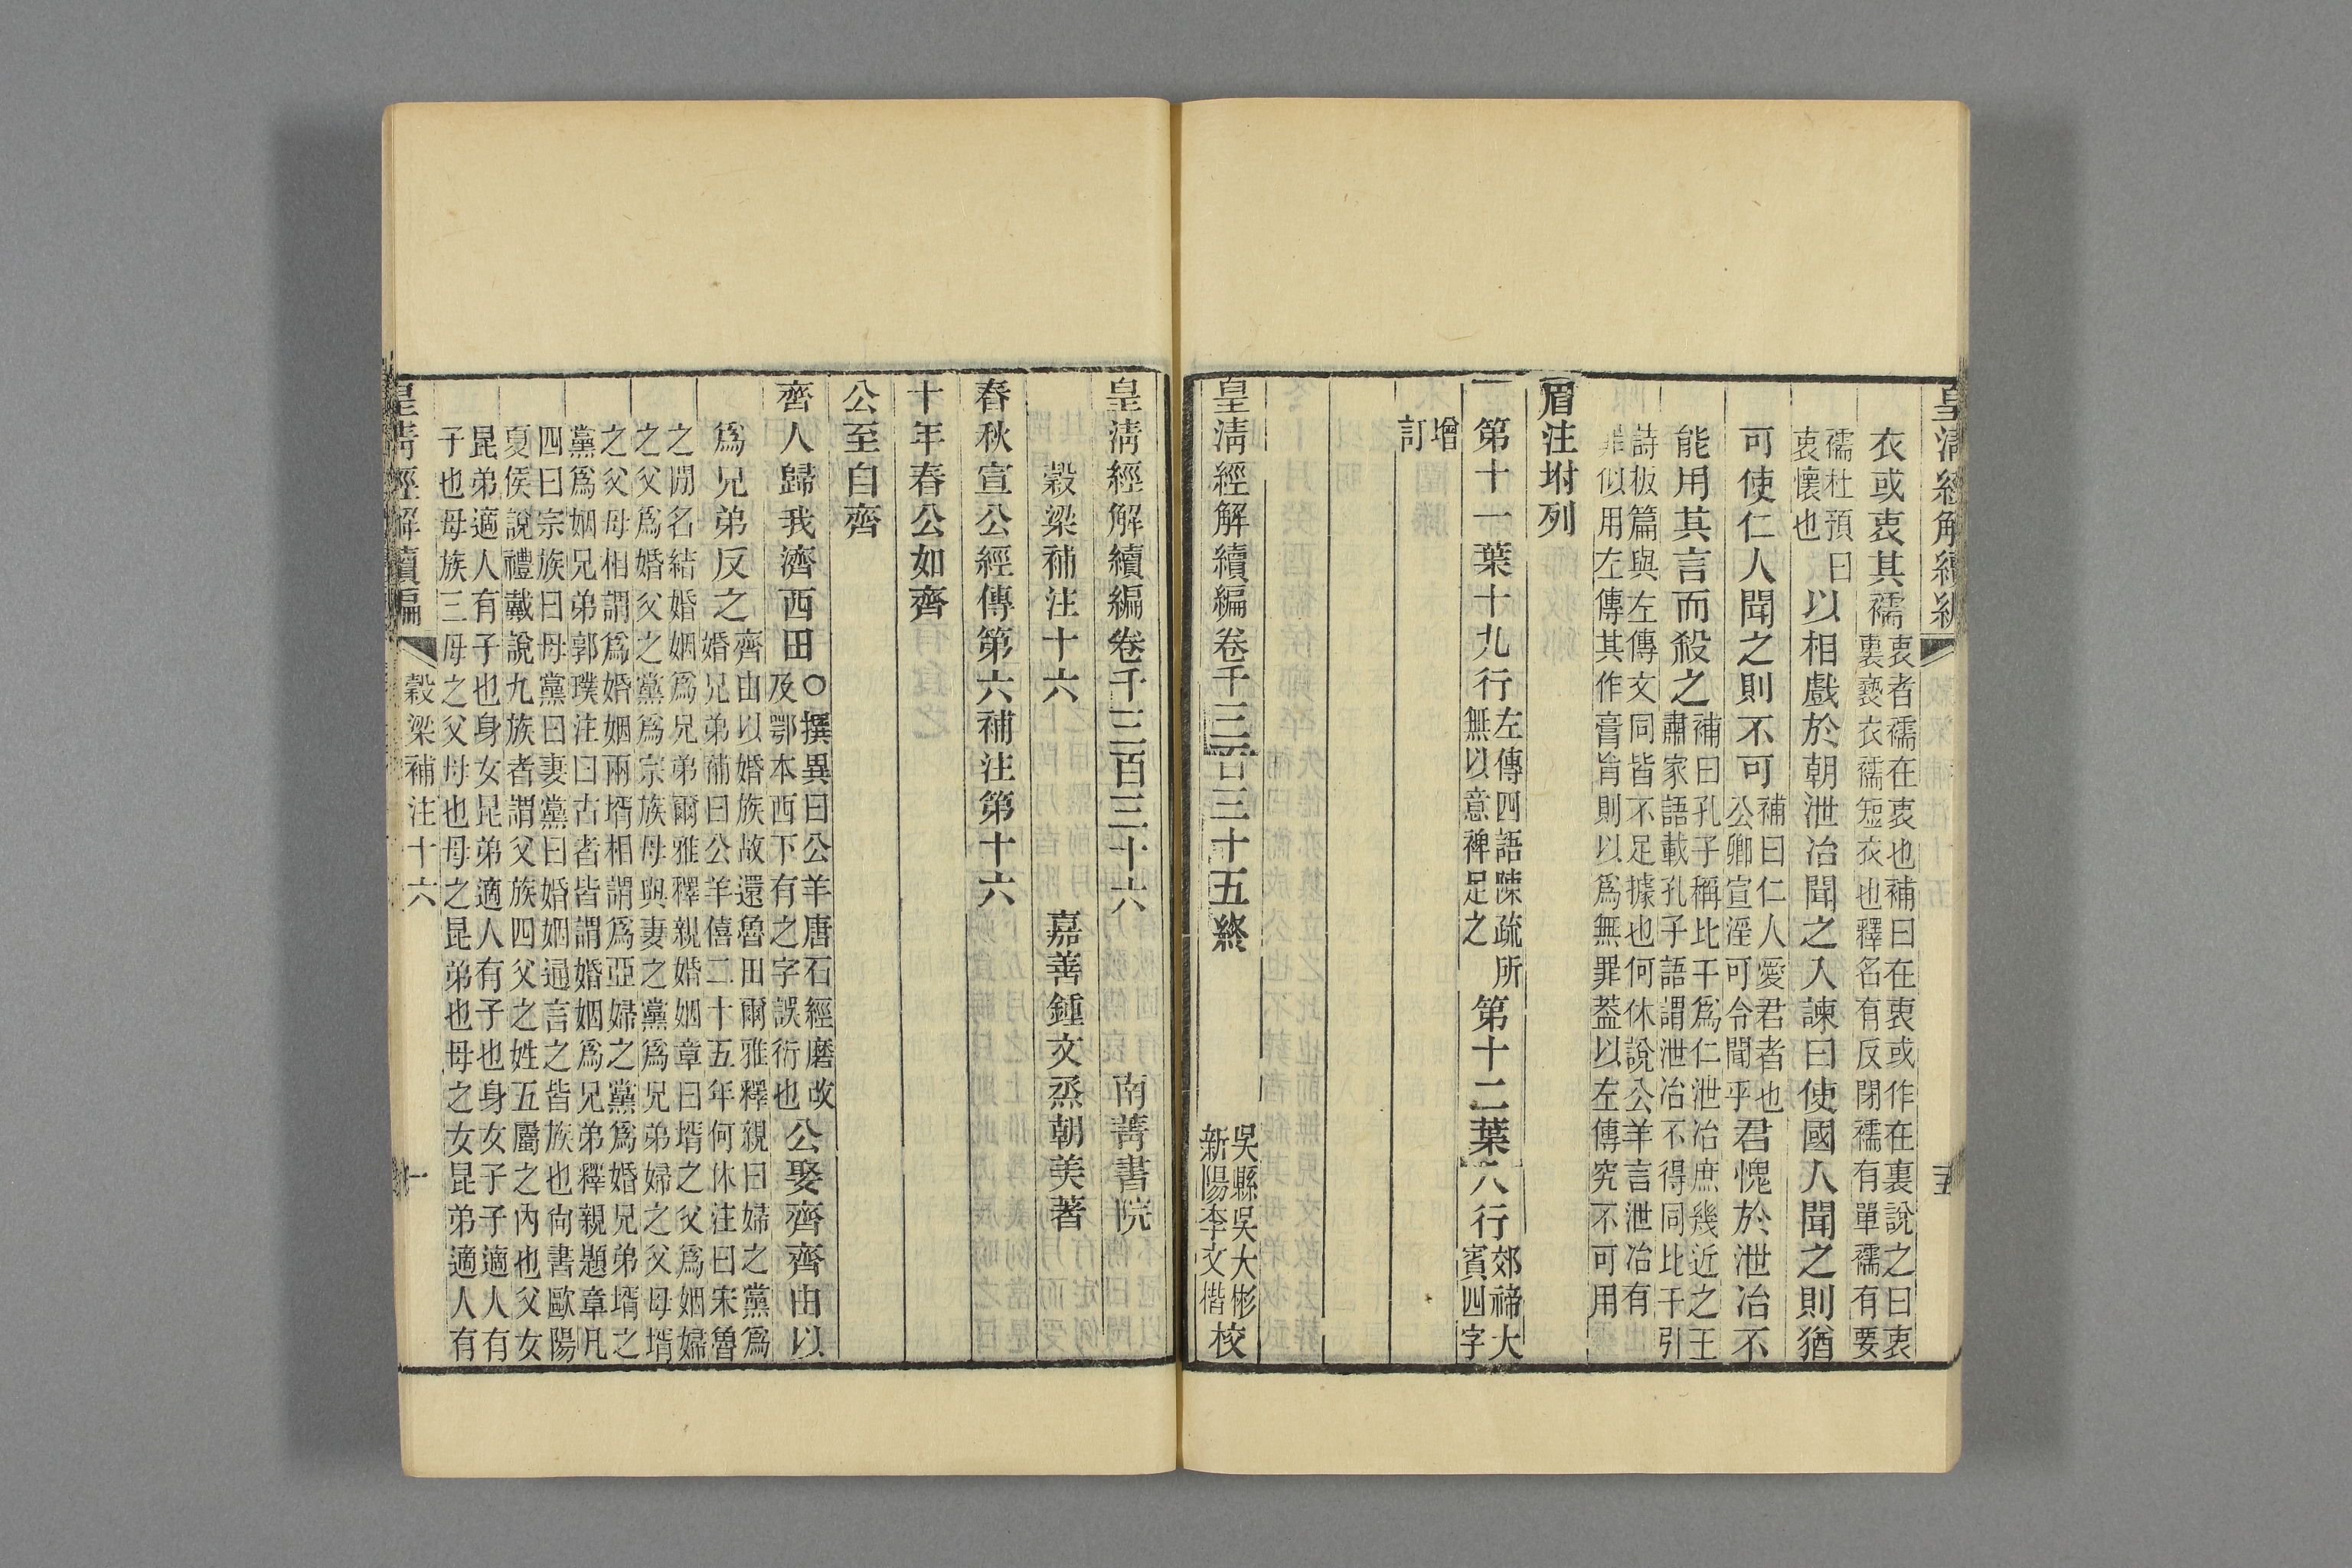 皇清經解續編
衣或衷其襦衷者襦在衷也補曰在衷或作在裏說之曰衷
裏褻衣襦短衣也釋名有反閉襦有單襦有要
襦杜預曰
衷懷也以相戲於朝泄冶聞之入諫曰使國人聞之則猶
可使仁人聞之則不可補曰仁人愛君者也
公卿宣淫可令聞乎君愧於泄冶不
能用其言而殺之補曰孔子稱比干爲仁泄冶庶幾近之王
肅家語載孔子語謂泄冶不得同比干引
詩板篇與左傳文同皆不足據也何休說公羊言泄冶有
罪似用左傳其作膏肓則以爲無罪葢以左傳究不可用
眉注坿列
一第十一葉十九行左傳四語陳疏所
無以意裨足之第十二葉六行郊禘大
賓四字
增
訂
皇清經解續編卷千三百三十五終
吳縣吳大彬
新陽李文楷校
皇清經解續編卷千三百三十六 南菁書院
穀梁補注十六 嘉善鍾文烝朝美著
春秋宣公經傳第六補注第十六
十年春公如齊
公至自齊
齊人歸我濟西田○撰異曰公羊唐石經磨改
及鄂本西下有之字誤衍也公娶齊齊由以
爲兄弟反之齊由以婚族故還魯田爾雅釋親曰婦之黨爲
婚兄弟補曰公羊僖二十五年何休注曰宋魯
之閒名結婚姻爲兄弟爾雅釋親婚姻章曰壻之父爲姻婦
之父爲婚父之黨爲宗族母與妻之黨爲兄弟婦之父母壻
之父母相謂爲婚姻兩壻相謂爲亞婦之黨爲婚兄弟壻之
黨爲姻兄弟郭璞注曰古者皆謂婚姻爲兄弟釋親題章凡
四曰宗族曰母黨曰妻黨曰婚姻通言之皆族也尚書歐陽
夏侯說禮戴說九族者謂父族四父之姓五屬之內也父女
昆弟適人有子也身女昆弟適人有子也身女子子適人有
子也母族三母之父母也母之昆弟也母之女昆弟適人有
皇清經解續編 穀梁補注十六 一